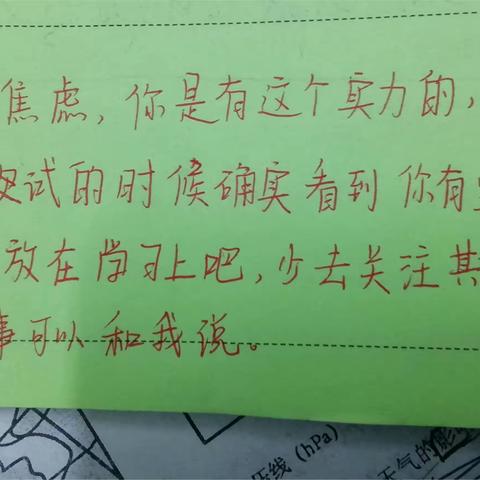 焦虑，你是有这个实力的，
试的时候确实看到你有
放在学习上吧，少去关注其
事可以和我说。
压线（hPa）
天气的影